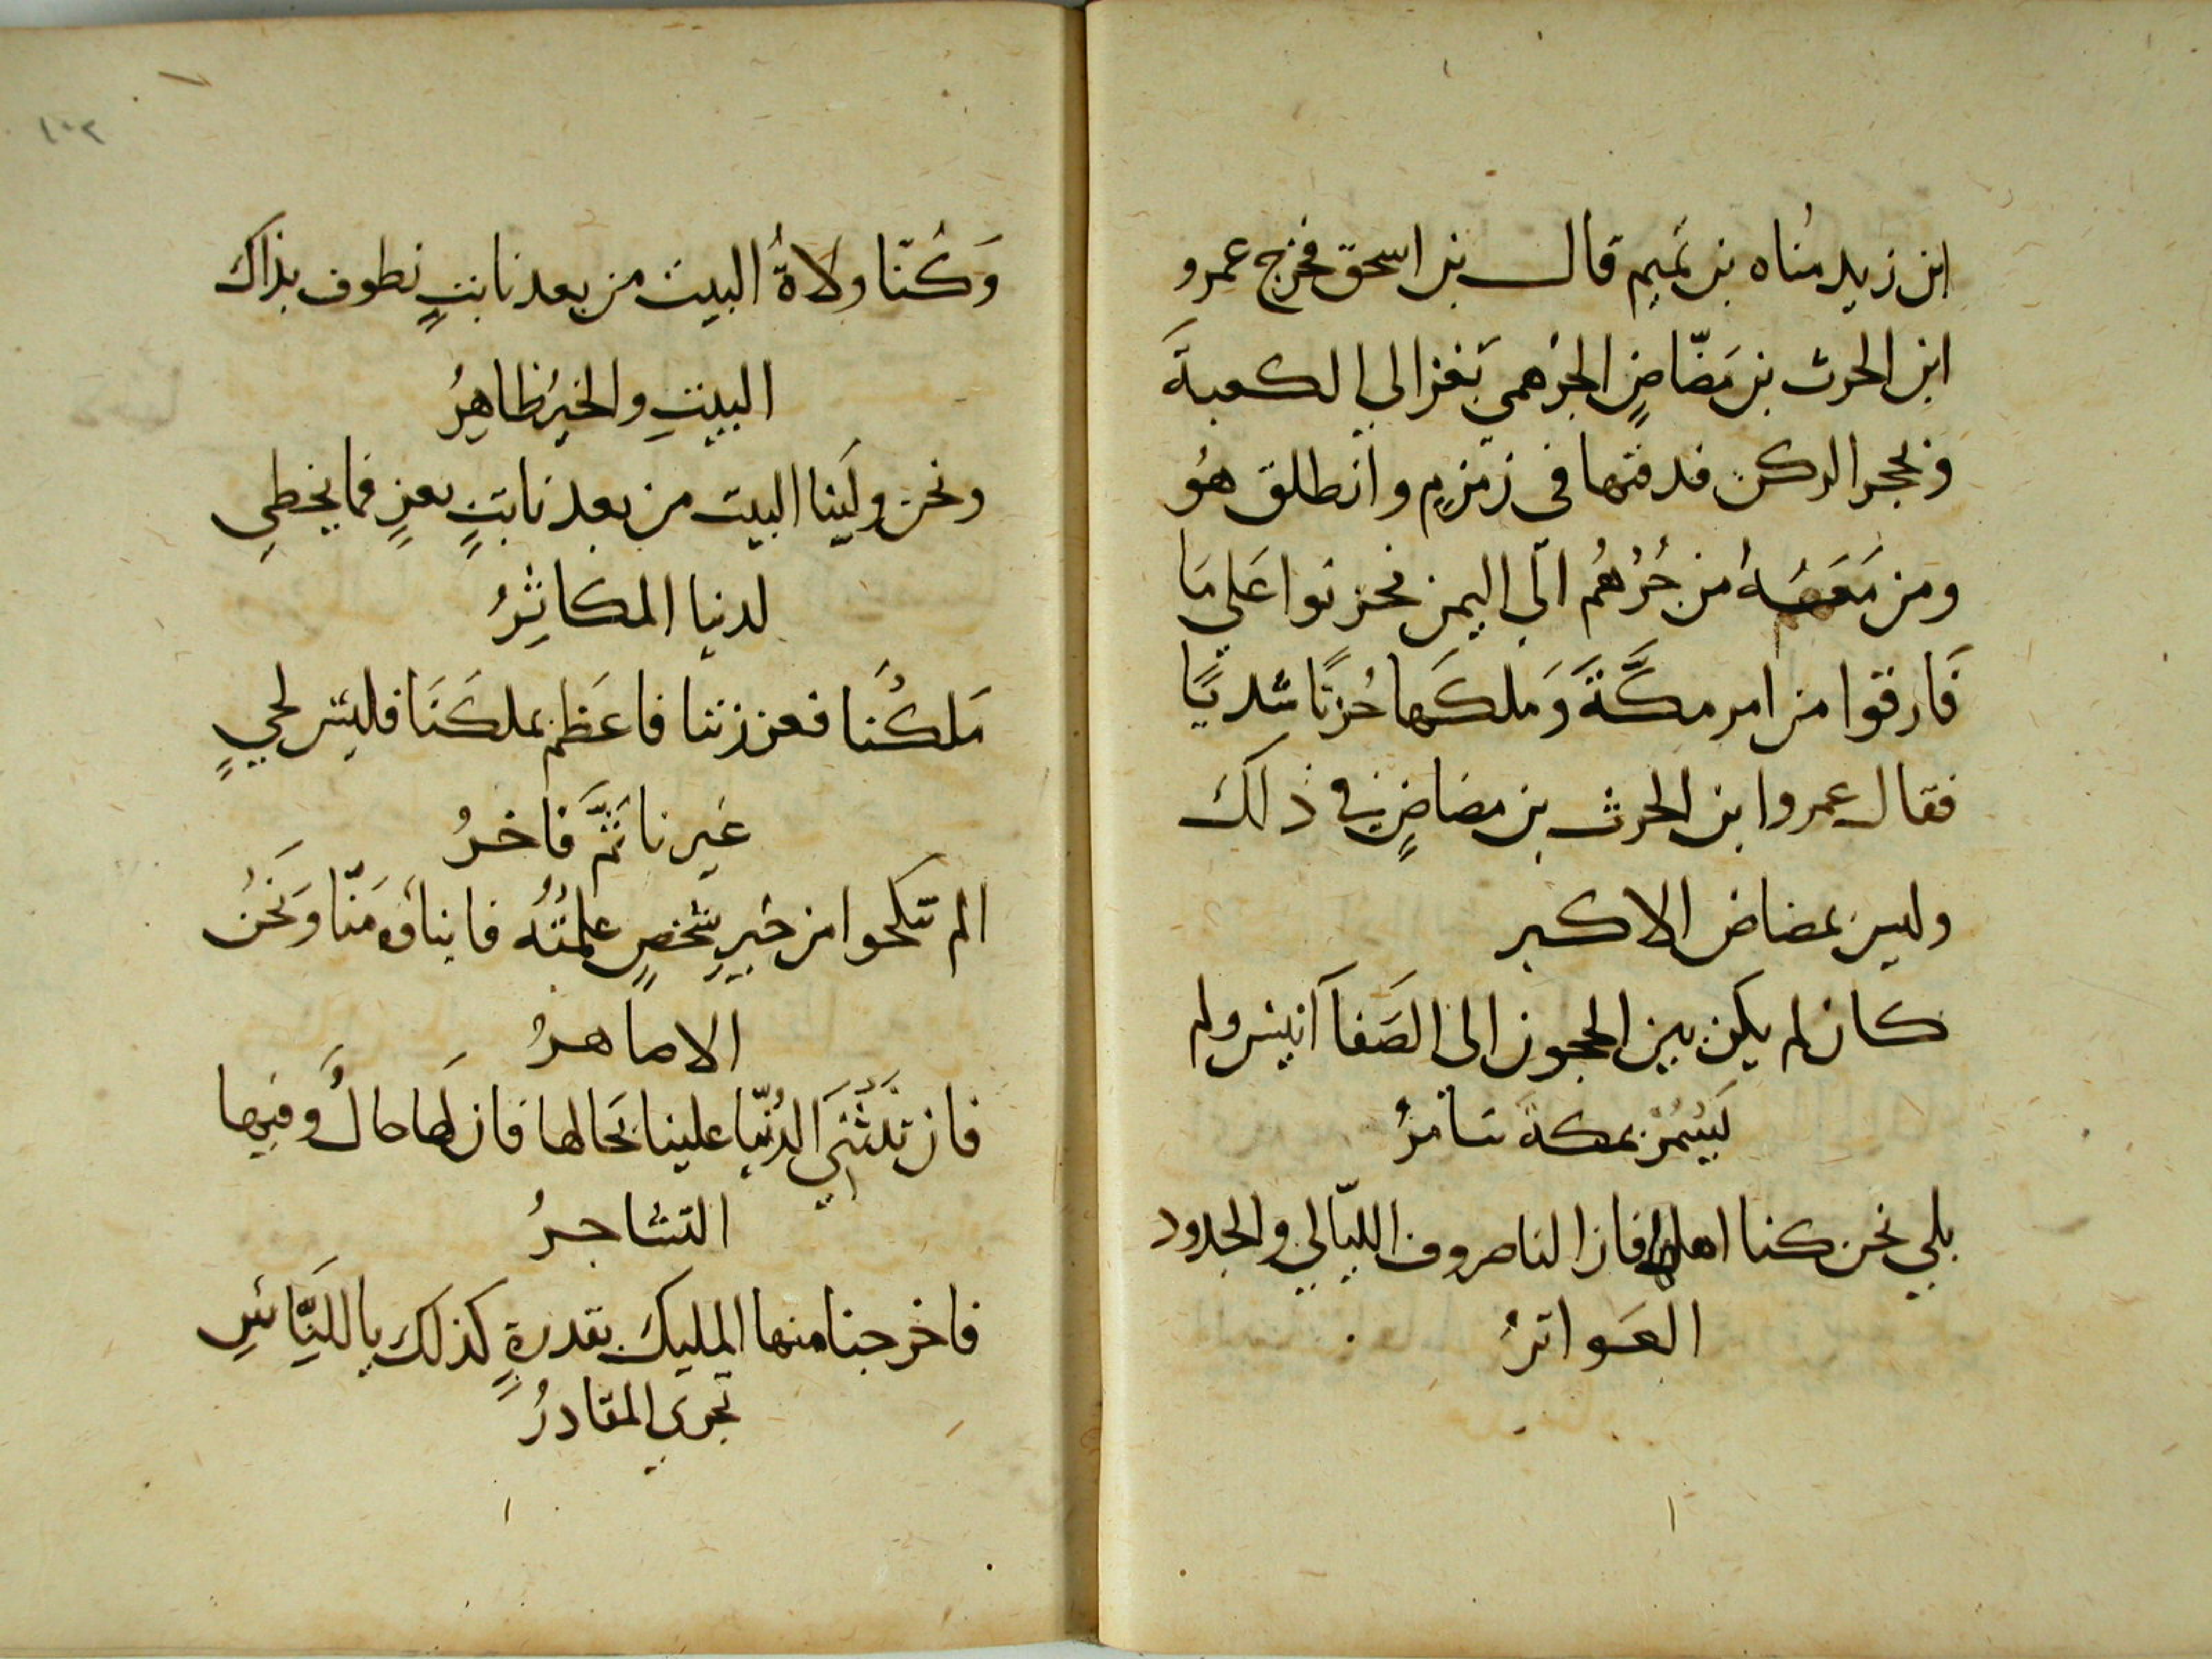 ابن زيد مُناه بن تميم قال بن اسحق فخرج عمرو
ابن الحرث بن مَضّاضٍ الجرهمي بَغزالي الكعبةَ
وبحجر الركن فدفنها في زمزمٍ وانطلق هُو
ومن مَعَهُ من جُرْهُم الي اليمن فحزنوا عَلي مَا
فَارقوا من امر مكَّةَ وَملكَها حُزنًا شديًا
فقال عمروا بن الحرث بن مضاضٍ في ذلك
وليس بمضاض الاكبر
كان لم يكن بين الحجون الى الصَفا انيس ولم
يَسْمُرْ بمكة سَامرُ
بلي نحن كنا اهلها فازالنا صروف الليّالي والجدود
العَواثرُ
١٠٢
وَكُنّا ولاةُ البيت من بعد نابتٍ نطوف بذاك
البيتِ والخيرُ ظاهِرُ
ونحن ولَينا البيت من بعد نابتٍ بعزٍ فما يخطي
لدنيا المكاثِرُ
مَلكُنَا فعززنا فاعَظم بملكَنَا فليس لحيٍ
غيرنا ثَمَّ فَاخرُ
الم تنكحوا من خيرِ شخصٍ علمتُهُ فابناؤه مَنّا وَنَحْنُ
الاماهرُ
فان تَنْثَنِي الدُنيّا علينا بحَالها فان لهَا حالٌ وَفيها
التشاجرُ
فاخرجنا منها المليك بقدرةٍ كذلك يا للنَّاسِ
تجري المقادرُ